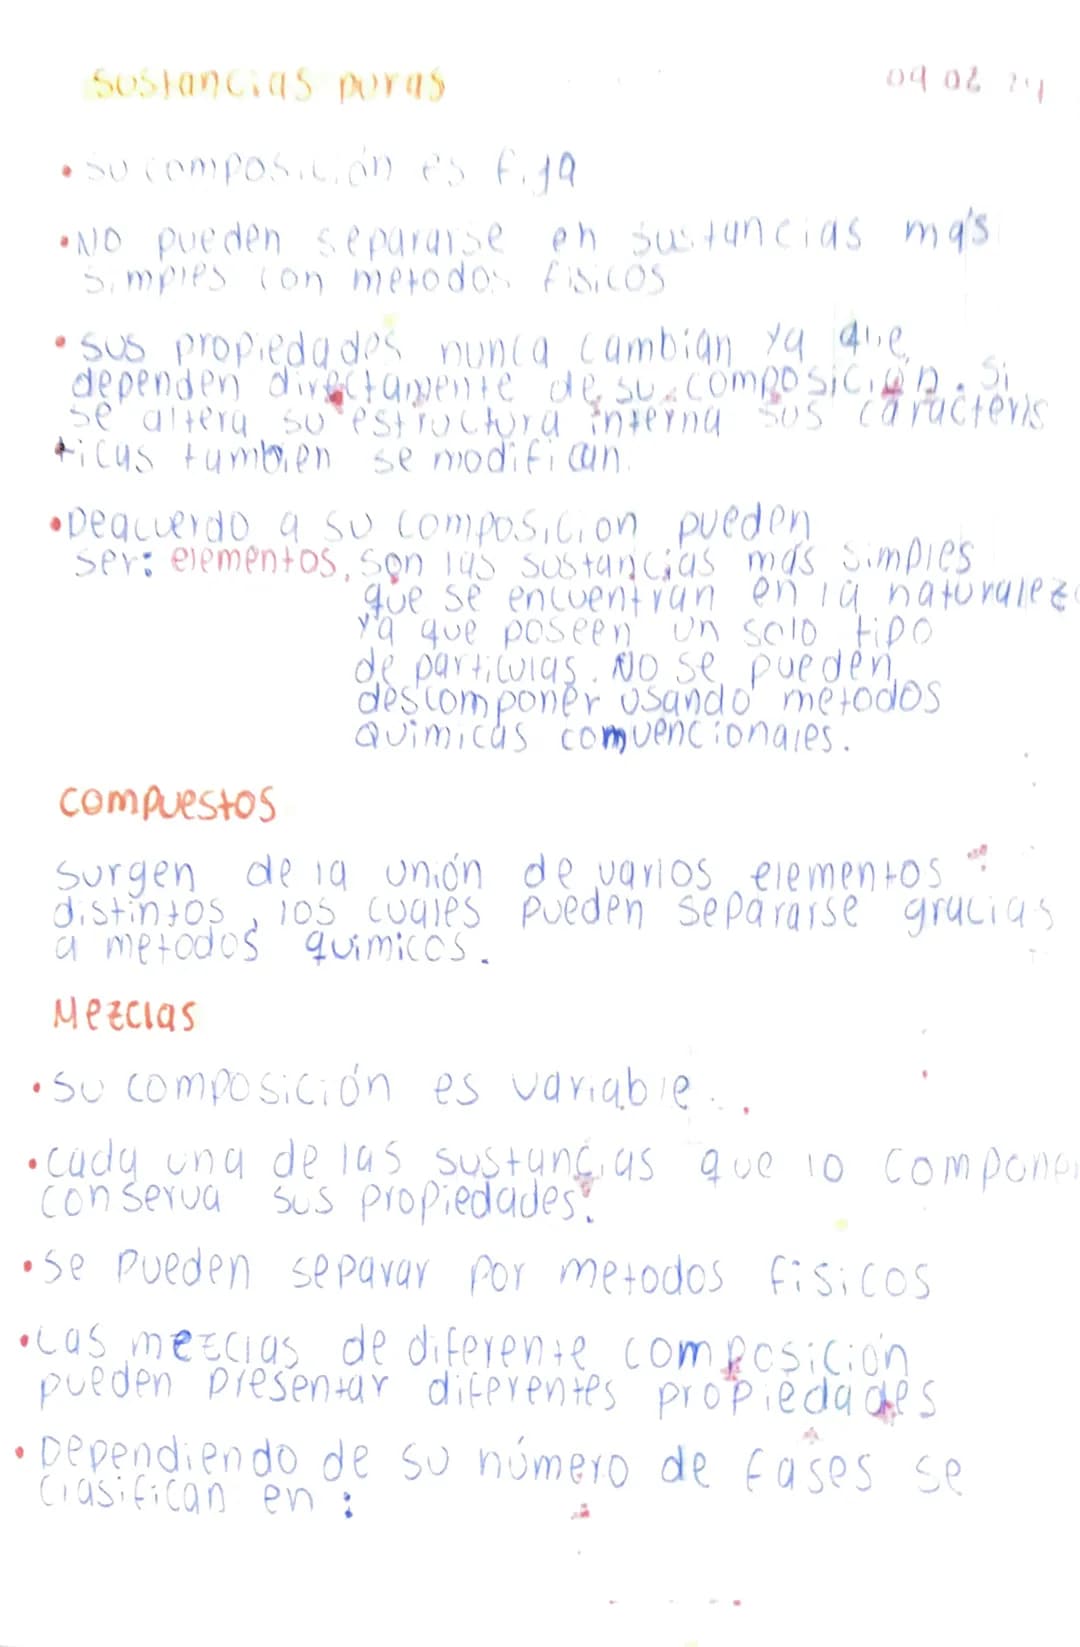 sustancias puras
09 08 24
• su composición es fija
• NO pueden separarse en sustancias más
simples con metodos fisicos
• sus propiedades nunca cambian ya que
dependen directamente de su composición. Si
se altera su estructura interna sus caracteris
ticas tambien se modifican.
• Deacuerdo a su composicion pueden
ser: elementos. son las sustancias más simples
que se encuentran en la naturaleza
ya que poseen un solo tipo
de particulas. NO se pueden
descomponer usando metodos
Quimicas comvencionales.
compuestos
surgen de la unión de varios elementos
distintos, los cuales pueden separarse gracias
a metodos quimicos.
Mezclas
• su composición es variable.
• cada una de las sustancias que lo componen
conserva sus propiedades.
• se pueden separar por metodos fisicos
• Las mezclas de diferente composición
pueden presentar diferentes propiedades
• Dependiendo de su número de fases se
clasifican en: